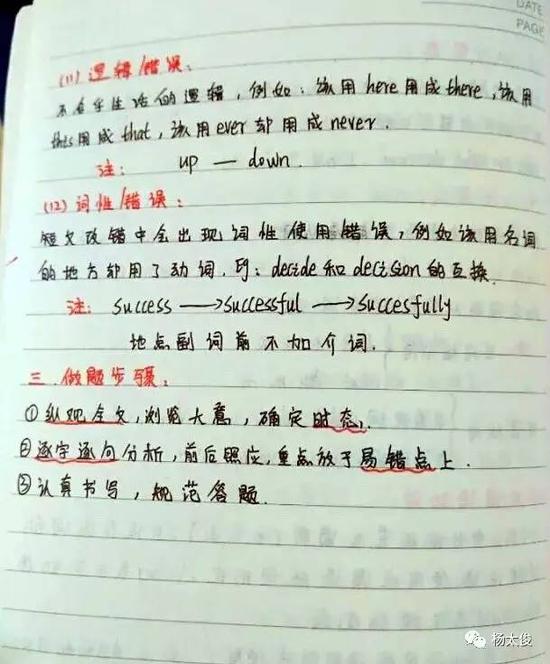 DATE
PAGE
(11) 逻辑错误:
不合乎生活的逻辑,例如:该用 here 用成 there,该用
this 用成 that,该用 ever 却用成 never.
注: up — down.
(12) 词性错误:
短文改错中会出现词性使用错误,例如该用名词
的地方却用了动词,即:decide 和 decision 的互换.
注: success → successful → succesfully
地点副词前不加介词.
三.做题步骤:
①纵观全文,浏览大意,确定时态,.
②逐字逐句分析,前后照应,重点放于易错点上.
③认真书写,规范答题.
杨太俊